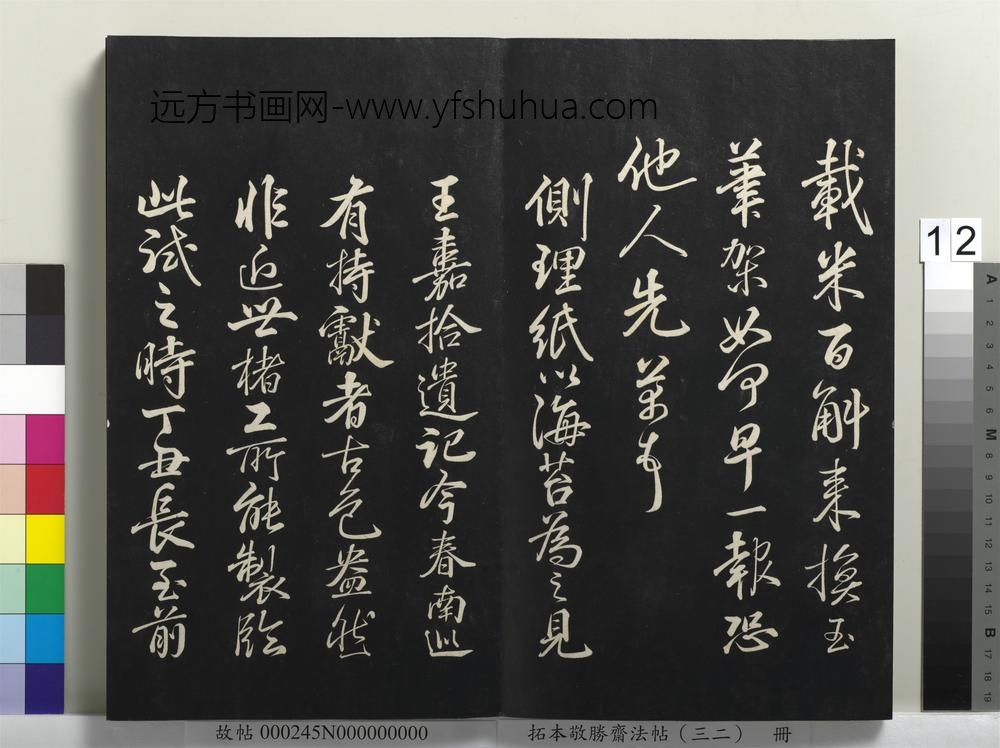 远方书画网-www.yfshuhua.com
載米百斛来換玉
筆架如何早一報恐
他人先芾頓首
側理紙以海苔為之見
王嘉拾遺記今春南巡
有持獻者古色盎然
非近世楮工所能製臨
此試之時丁丑長至前
12
A 1 2 3 4 5 6 M 8 9 10 11 12 13 14 15 B 17 18 19
故帖 000245N000000000
拓本敬勝齋法帖（三二） 冊